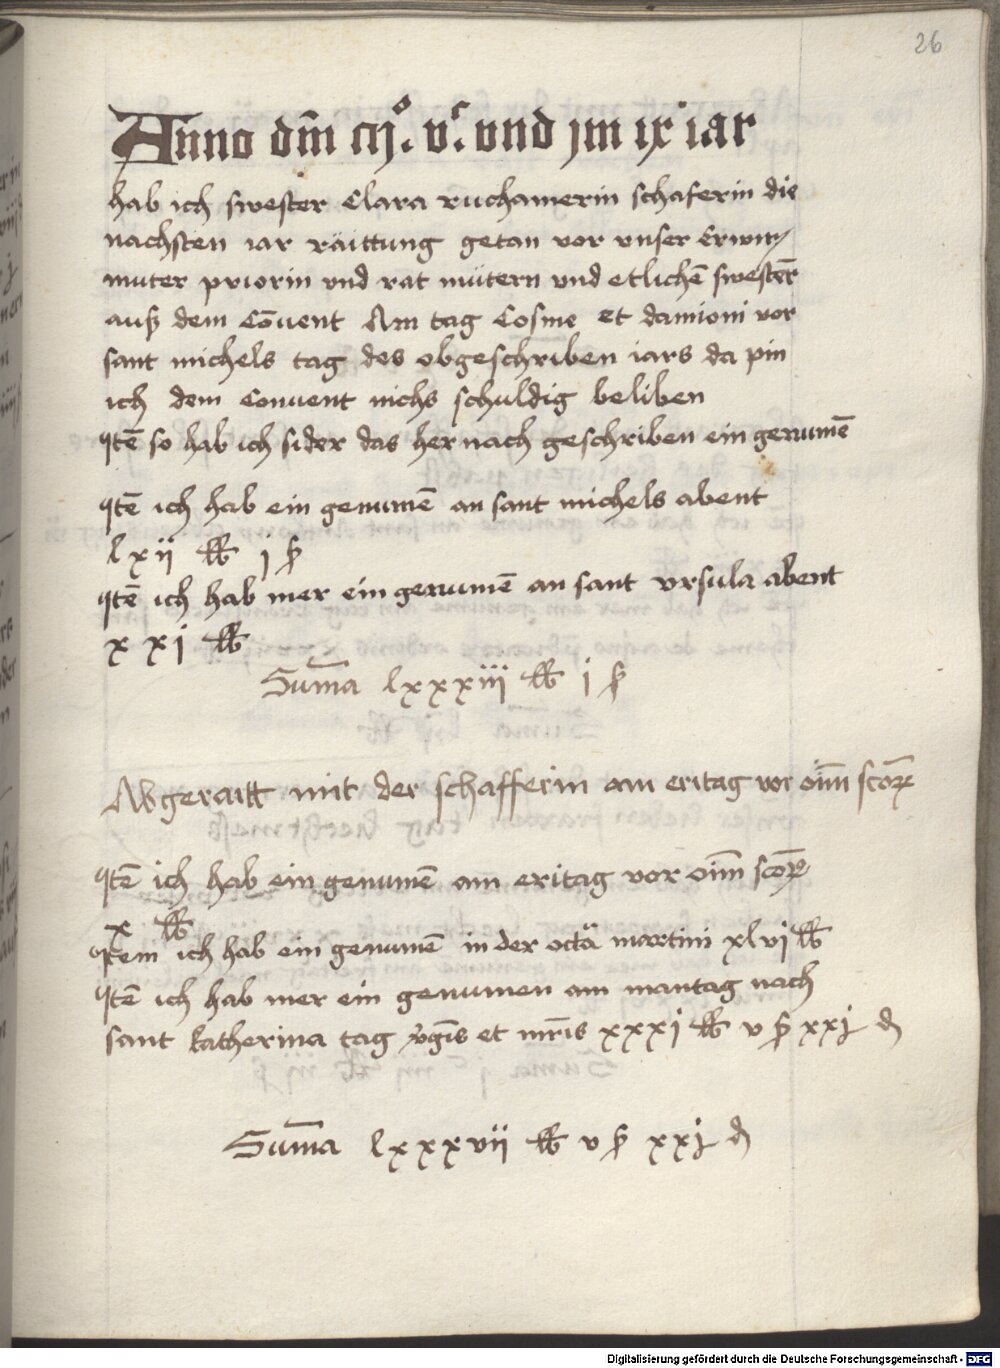 26
Anno dm̄ cıȷ° vᶜ vnd ȷm ıx iar
hab ich swester Clara ruchamerin schaferin die
nachsten iar räittung getan vor vnser Erwir
muter priorin vnd rat mütern vnd etlichē swestēr
auß dem Cōuent Am tag Cosme et damioni vor
sant michels tag des obgeschriben iars da pin
ich dem Conuent nichs schuldig beliben
Itē so hab ich sider das hernach geschriben ein genumē
Itē ich hab ein genumē an sant michels abent
lxii ℔ j ß
Itē ich hab mer ein genumē an sant vrsula abent
x xj ℔
Sum̄a lxxxiii ℔ i ß
Abgeraitt mit der schafferin am eritag vor oīm scōrꝝ
Itē ich hab ein genumē am eritag vor oīm scōrꝝ
x ℔
Item ich hab ein genumē in der octā martini xlvj ℔
Itē ich hab mer ein genumen am mantag nach
sant katherina tag v̄gīs et mr̄is xxxj ℔ v ß xxj d
Sum̄a lxxxvii ℔ v ß xxj d
Digitalisierung gefördert durch die Deutsche Forschungsgemeinschaft - DFG